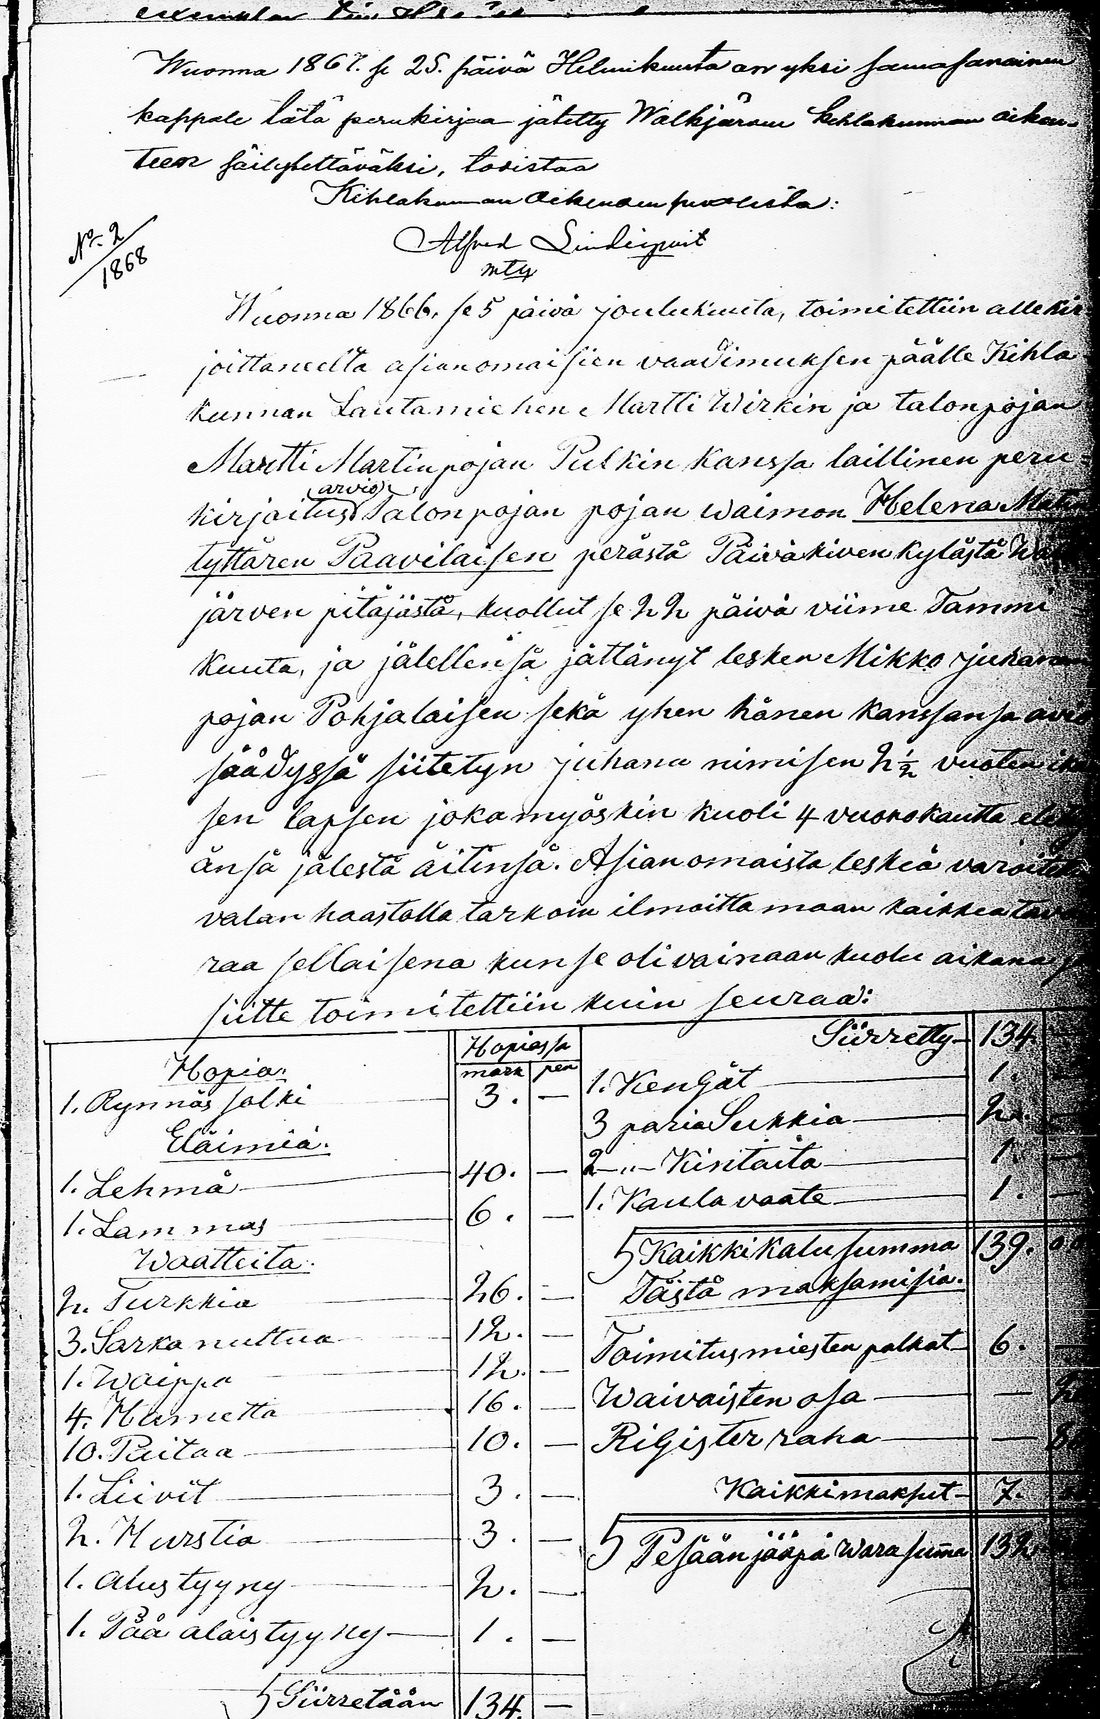 Wuonna 1867. se 25. päivä Helmikuuta on yksi samasanainen
kappale tätä perukirjaa jätetty Walkjärven Kihlakunnan oikeu-
teen säilytettäväksi, todistaa
Kihlakunnan Oikeuden puolesta:
Alfred Lindeqvist
mty
No. 2
1868
Wuonna 1866, se 5 päivä joulukuuta, toimitettiin allekir-
joittaneelta asianomaisien vaadimuksen päälle Kihla-
kunnan Lautamiehen Martti Wirkin ja talonpojan
Martti Martinpojan Pulkin kanssa laillinen peru-
(arvio)
kirjoitus Talonpojan pojan waimon Helena Matin
tyttären Paavilaisen perästä Päiväkiven kylästä
järven pitäjästä, kuollut se 22 päivä viime Tammi-
kuuta, ja jälellensä jättänyt lesken Mikko Juhanan
pojan Pohjalaisen sekä yhen hänen kanssansa avio
säädyssä siitetyn Juhana nimisen 2 1/2 vuoten ikä
sen lapsen joka myöskin kuoli 4 vuorokautta
änsä jälestä äitinsä. Asianomaista leskiä varoitet
valan haastolla tarkoin ilmoittamaan kaikkea tava
raa sellaisena kun se oli vainaan kuolu aikana ja
siitte toimitettiin kuin seuraa:
Hopiassa
mark pen
Hopia.
1. Rynnäs solki 3. —
Eläimiä.
1. Lehmä 40. —
1. Lammas 6. —
Waatteita.
2. Turkkia 26. —
3. Sarka nuttua 12. —
1. Waippa 12. —
4. Hametta 16. —
10. Paitaa 10. —
1. Liivit 3. —
2. Hurstia 3. —
1. alustyyny 2. —
1. Pää alaistyyny 1. —
Siirretään 134. —
Siirretty 134
1. Kengät 1.
3 paria Sukkia 2.
2 —"— Kintaita 1.
1. Kaulavaate 1. —
Kaikki kalu summa 139.
Tästä maksamisia.
Toimitusmiesten palkat 6. —
Waivaisten osa —
Rigister raha —
Kaikki maksut 7.
Pesään jääpä wara summa 132